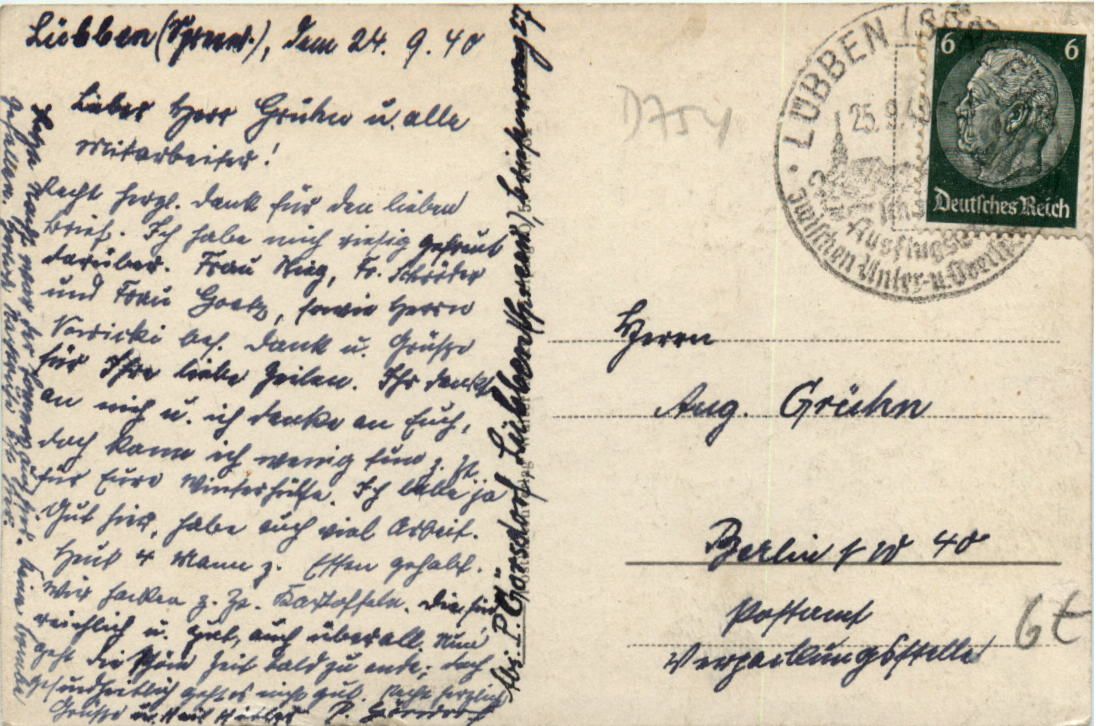 Lübben (Spreew.), dem 24. 9. 40
Lieber Herr Grühn u. alle
Mitarbeiter!
Recht herzl. Dank für den lieben
Brief. Ich habe mich riesig gefreut
darüber. Frau Krieg, Fr. Schröder
und Frau Goetz, sowie Herrn
bes. Dank u. Grüße
für Ihre liebe Zeilen. Ihr denkt
an mich u. ich denke an Euch,
doch kann ich wenig tun z. Zt.
für Eure Winterhilfe. Ich lebe ja
Gut hier, habe auch viel Arbeit.
Heut 4 Mann z. Essen gehabt.
Wir hacken z. Zt. Kartoffeln. Die sind
reichlich u. gut, auch überall. Nun
geht die schöne Zeit bald zu ende, doch
gesundheitlich geht es nicht gut. Recht herzlich
Grüße u. Heil Hitler P. Görsdorf
Letzte Nacht war der Tommy auch hier. Keine Bombe
gefallen.
Abs: P. Görsdorf, Lübben (Spreew.)
D754
LÜBBEN (SP
25. 9. 40
Ausflugs
zwischen Unter- u. Oberspree
6 6
Deutsches Reich
Herrn
Aug. Grühn
Berlin N W 40
Postamt
Verpackungsstelle
6t